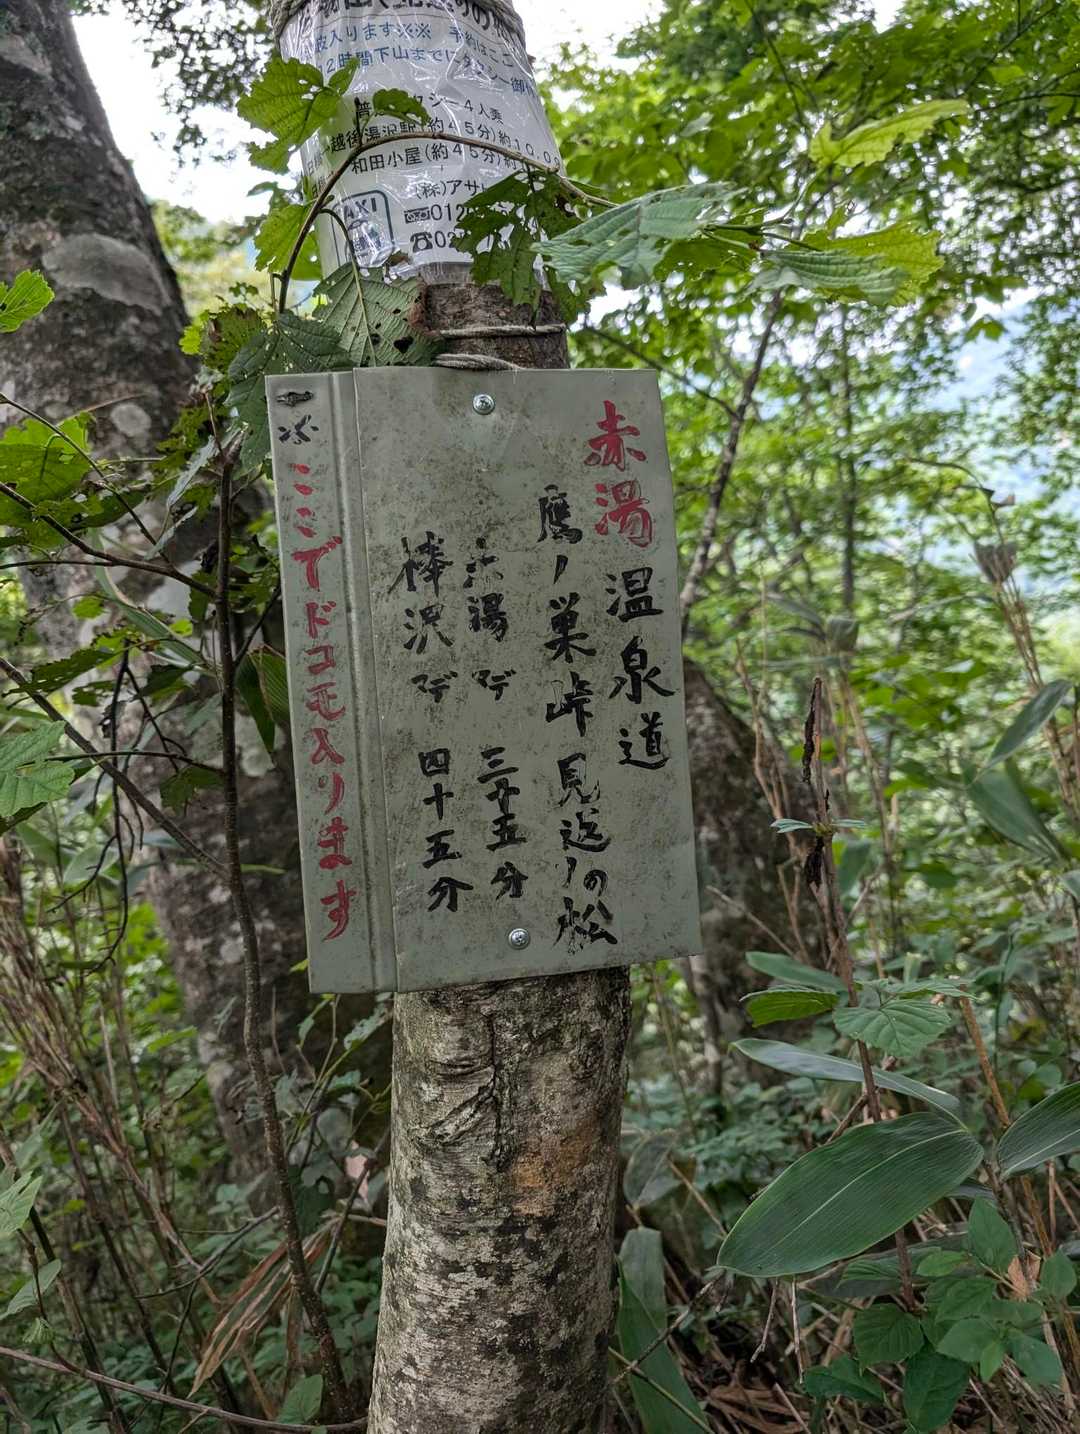 波入ります※※ 予約はここ
2時間下山までにタクシー御
タクシー4人乗
越後湯沢駅(約45分)約10,0
和田小屋(約45分)約
(株)アサヒ
TAXI
012
☎02
赤湯温泉道
鷹ノ巣峠見返りの松
赤湯マデ 三十五分
棒沢マデ 四十五分
※ここでドコモ入ります